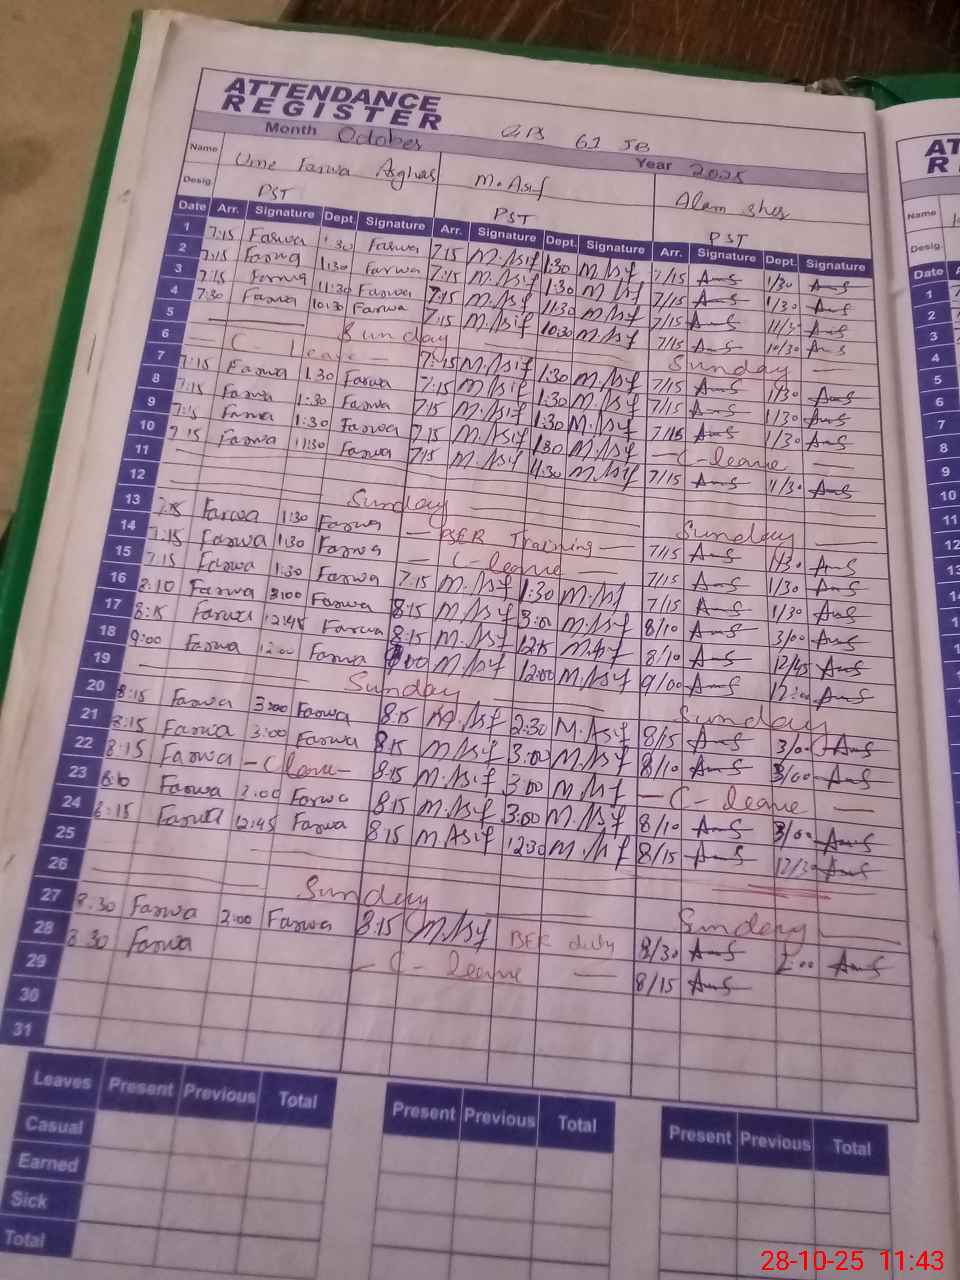 ATTENDANCE
REGISTER
Month October GPS 61 JB Year 2025
Name Ume Farwa Asghar M. Asif Alam sher
Desig. PST PST PST
Date Arr. Signature Dept. Signature Arr. Signature Dept. Signature Arr. Signature Dept. Signature
1 7:15 Farwa 1:30 Farwa 7:15 M.Asif 1:30 M.Asif 7/15 1/30
2 7:15 Farwa 1:30 Farwa 7:15 M.Asif 1:30 M.Asif 7/15 1/30
3 7:15 Farwa 11:30 Farwa 7:15 M.Asif 11:30 M.Asif 7/15 11/30
4 7:30 Farwa 10:30 Farwa 7:15 M.Asif 10:30 M.Asif 7/15 10/30
5 Sunday Sunday
6 C-leave 7:15 M.Asif 1:30 M.Asif 7/15 1/30
7 7:15 Farwa 1:30 Farwa 7:15 M.Asif 1:30 M.Asif 7/15 1/30
8 7:15 Farwa 1:30 Farwa 7:15 M.Asif 1:30 M.Asif 7/15 1/30
9 7:15 Farwa 1:30 Farwa 7:15 M.Asif 1:30 M.Asif C-leave
10 7:15 Farwa 11:30 Farwa 7:15 M.Asif 11:30 M.Asif 7/15 11/30
11
12 Sunday Sunday
13 7:15 Farwa 1:30 Farwa Training 7/15 1/30
14 7:15 Farwa 1:30 Farwa C-leave 7/15 1/30
15 7:15 Farwa 1:30 Farwa 7:15 M.Asif 1:30 M.Asif 7/15 1/30
16 8:10 Farwa 3:00 Farwa 8:15 M.Asif 3:00 M.Asif 8/10 3/00
17 8:15 Farwa 12:45 Farwa 8:15 M.Asif 12:45 M.Asif 8/10 12/45
18 9:00 Farwa 12:00 Farwa 9:00 M.Asif 12:00 M.Asif 9/00 12:00
19 Sunday Sunday
20 8:15 Farwa 3:00 Farwa 8:15 M.Asif 2:30 M.Asif 8/15 3/00
21 8:15 Farwa 3:00 Farwa 8:15 M.Asif 3:00 M.Asif 8/10 3/00
22 8:15 Farwa 8:15 M.Asif 3:00 M.Asif C-leave
23 8:10 Farwa 2:00 Farwa 8:15 M.Asif 3:00 M.Asif 8/10 3/00
24 8:15 Farwa 12:45 Farwa 8:15 M.Asif 12:30 M.Asif 8/15 12/30
25
26 Sunday Sunday
27 8:30 Farwa 2:00 Farwa 8:15 M.Asif duty 8/30 2:00
28 8:30 Farwa C-leave 8/15
29
30
31
Leaves Present Previous Total Present Previous Total Present Previous Total
Casual
Earned
Sick
Total
AT
R
Name
Desig.
Date
1
2
3
4
5
6
7
8
9
10
11
12
28-10-25 11:43